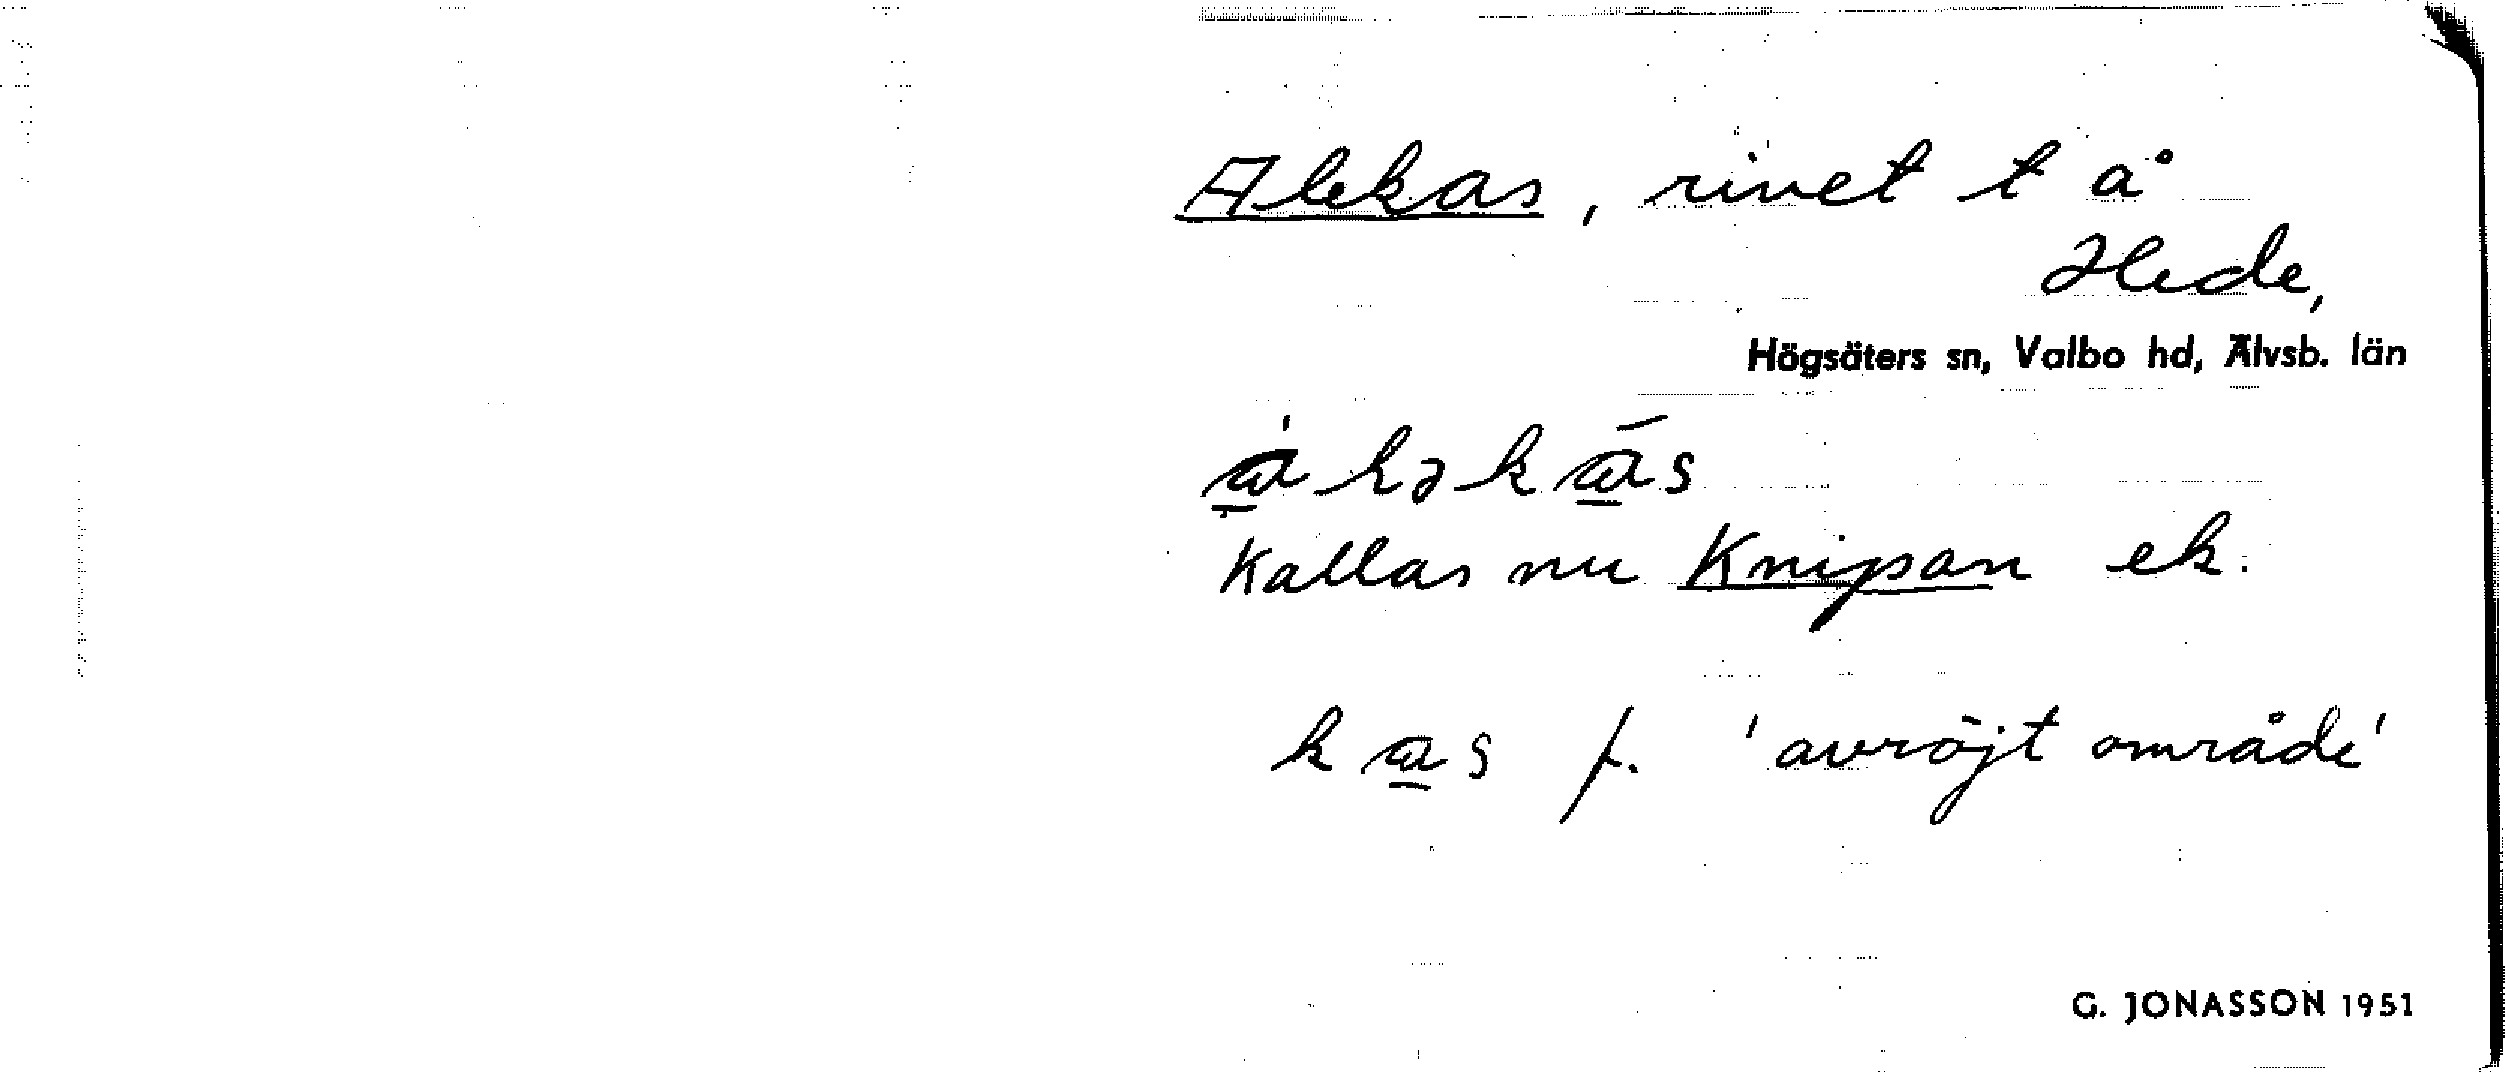 Alekas, rivet t å
Hede,
Högsäters sn, Valbo hd, Älvsb. län
kallas nu Knipan ek.
kas f. 'avröjt område'
G. JONASSON 1951